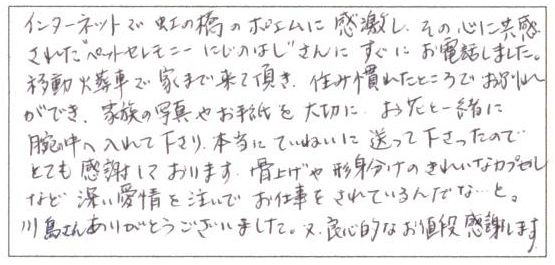 インターネットで虹の橋のポエムに感激し、その心に共感
された"ペットセレモニー にじのはし"さんにすぐにお電話しました。
移動火葬車で家まで来て頂き、住み慣れたところでお別れ
ができ、家族の写真やお手紙を大切に、お花と一緒に
腕の中へ入れて下さり、本当にていねいに送って下さったので
とても感謝しております。骨上げや形身分けのきれいなカプセル
など深い愛情を注いでお仕事をされているんだな…と。
川島さんありがとうございました。又、良心的なお値段感謝します